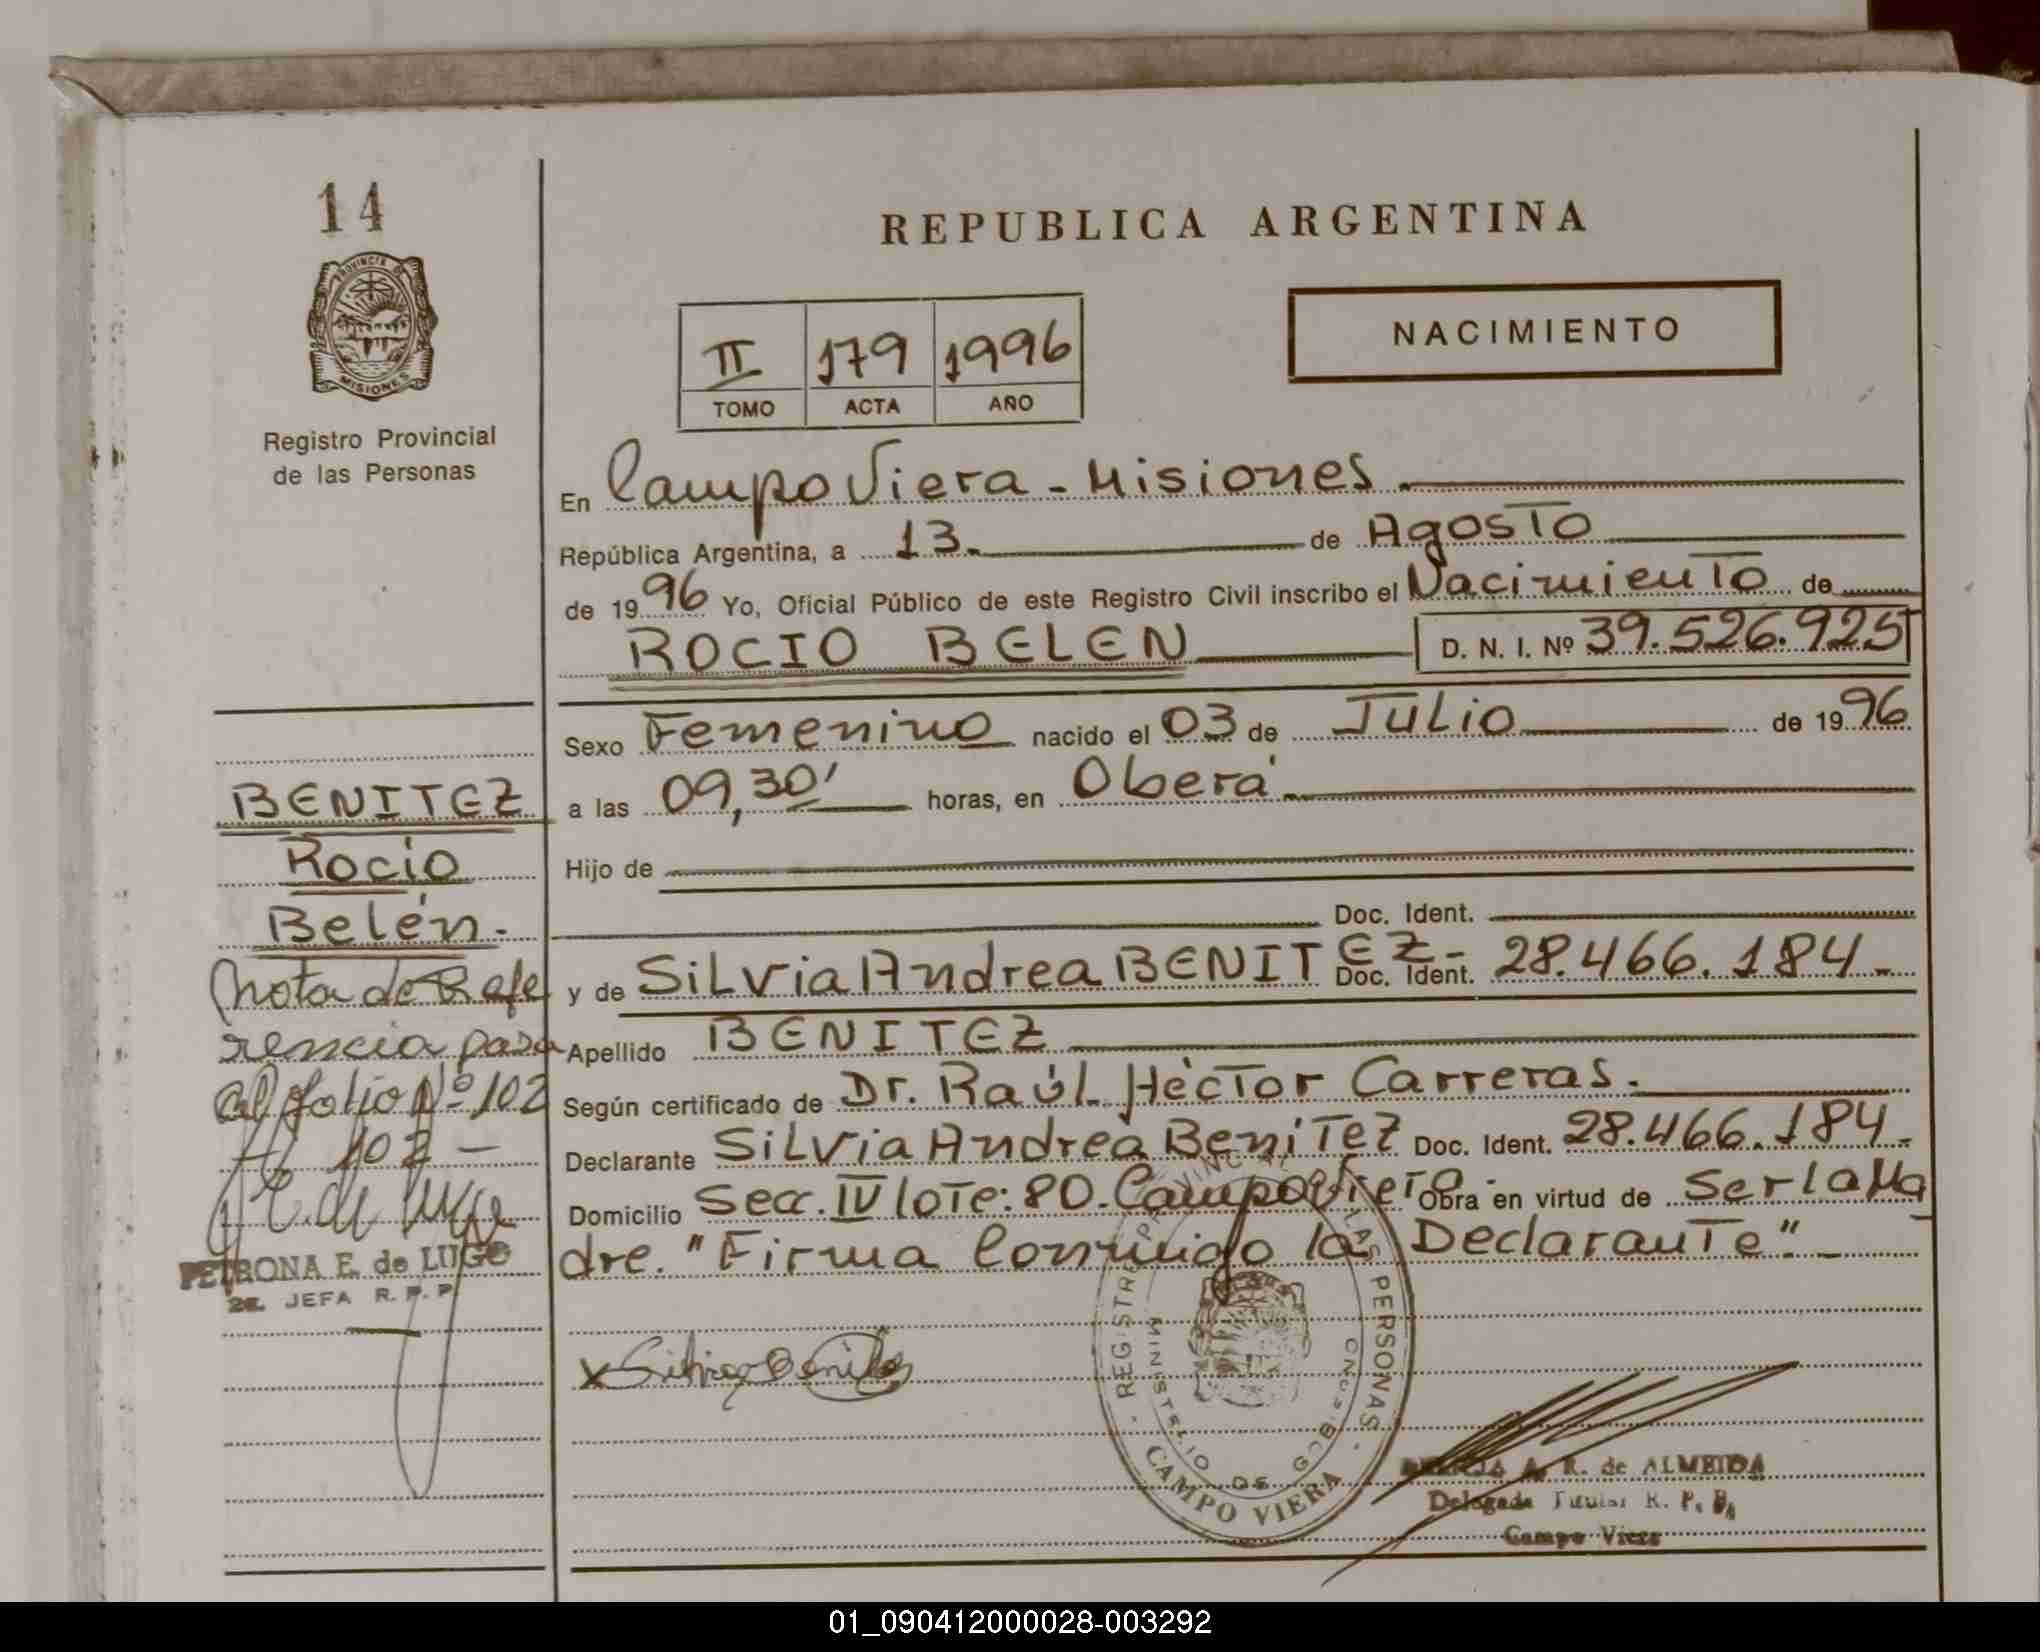 14
PROVINCIA DE
MISIONES
Registro Provincial
de las Personas
REPUBLICA ARGENTINA
II 179 1996
TOMO ACTA AÑO
NACIMIENTO
En Campo Viera - Misiones
República Argentina, a 13. de Agosto
de 1996 Yo, Oficial Público de este Registro Civil inscribo el Nacimiento de
ROCIO BELEN D. N. I. Nº 39.526.925
Sexo Femenino nacido el 03 de Julio de 1996
a las 09,30' horas, en Oberá
Hijo de
Doc. Ident.
y de Silvia Andrea BENITEZ - Doc. Ident. 28.466.184 -
Apellido BENITEZ
Según certificado de Dr. Raúl Héctor Carreras.
Declarante Silvia Andrea Benitez Doc. Ident. 28.466.184 -
Domicilio Secc. IV lote: 80. Campo Viera - Obra en virtud de Ser la Ma
dre. "Firma Conmigo la Declarante" -
BENITEZ
Rocío
Belén.
Nota de Refe
rencia pasa
al folio Nº 102
102 -
PETRONA E. de LUGO
2a. JEFA R. P. P.
x Silvia Benitez
REGISTRO PROVINCIAL DE LAS PERSONAS
MINISTERIO DE GOBIERNO
CAMPO VIERA
A. R. de ALMEIDA
Delegada Titular R. P. P.
Campo Viera
01_090412000028-003292